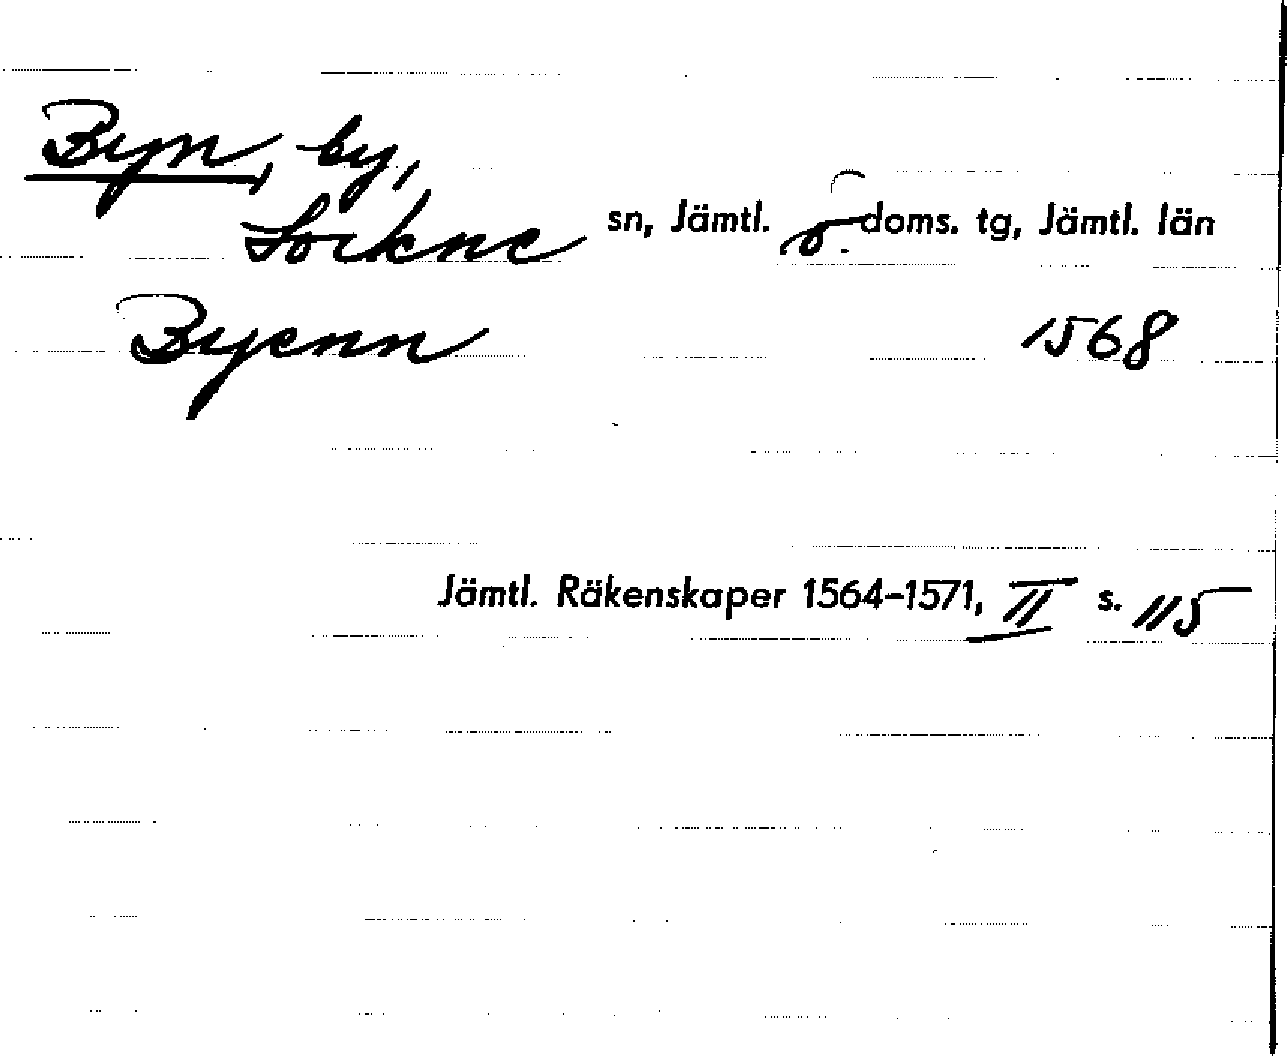 Byn, by,
Lockne sn, Jämtl. ö. doms. tg, Jämtl. län
Byenn 1568
Jämtl. Räkenskaper 1564-1571, II s. 115